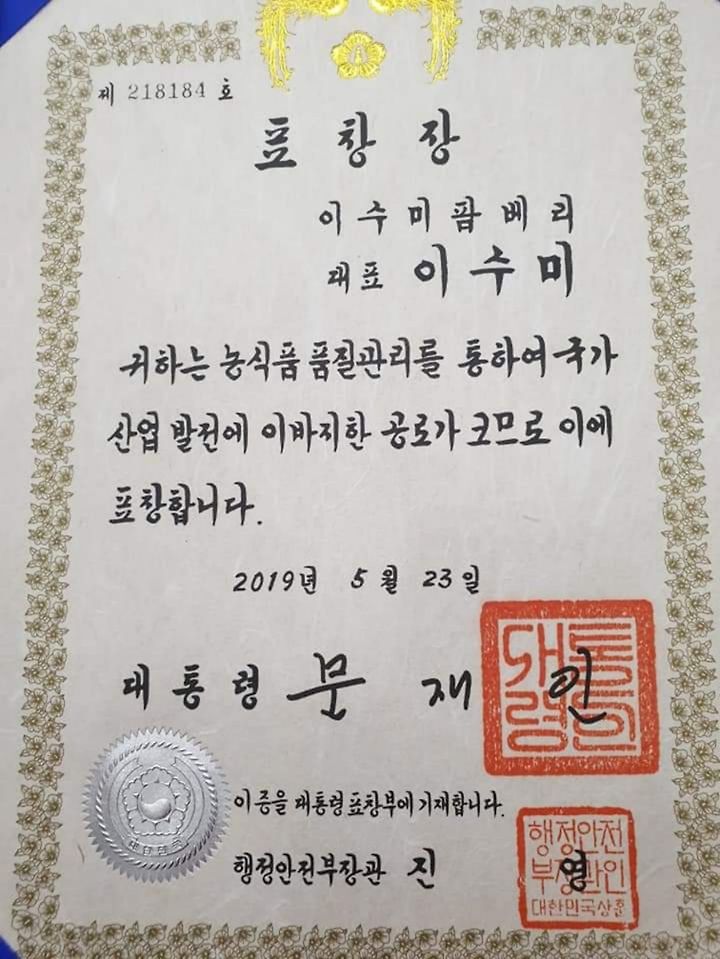 제 218184 호
표 창 장
이수미팜베리
대표 이 수 미
귀하는 농식품 품질관리를 통하여 국가
산업 발전에 이바지한 공로가 크므로 이에
표창합니다.
2019년 5월 23일
대통령 문 재 인
대통령의인
이 증을 대통령 표창부에 기재합니다.
행정안전부장관 진 영
행정안전
부장관인
대한민국상훈
대한민국